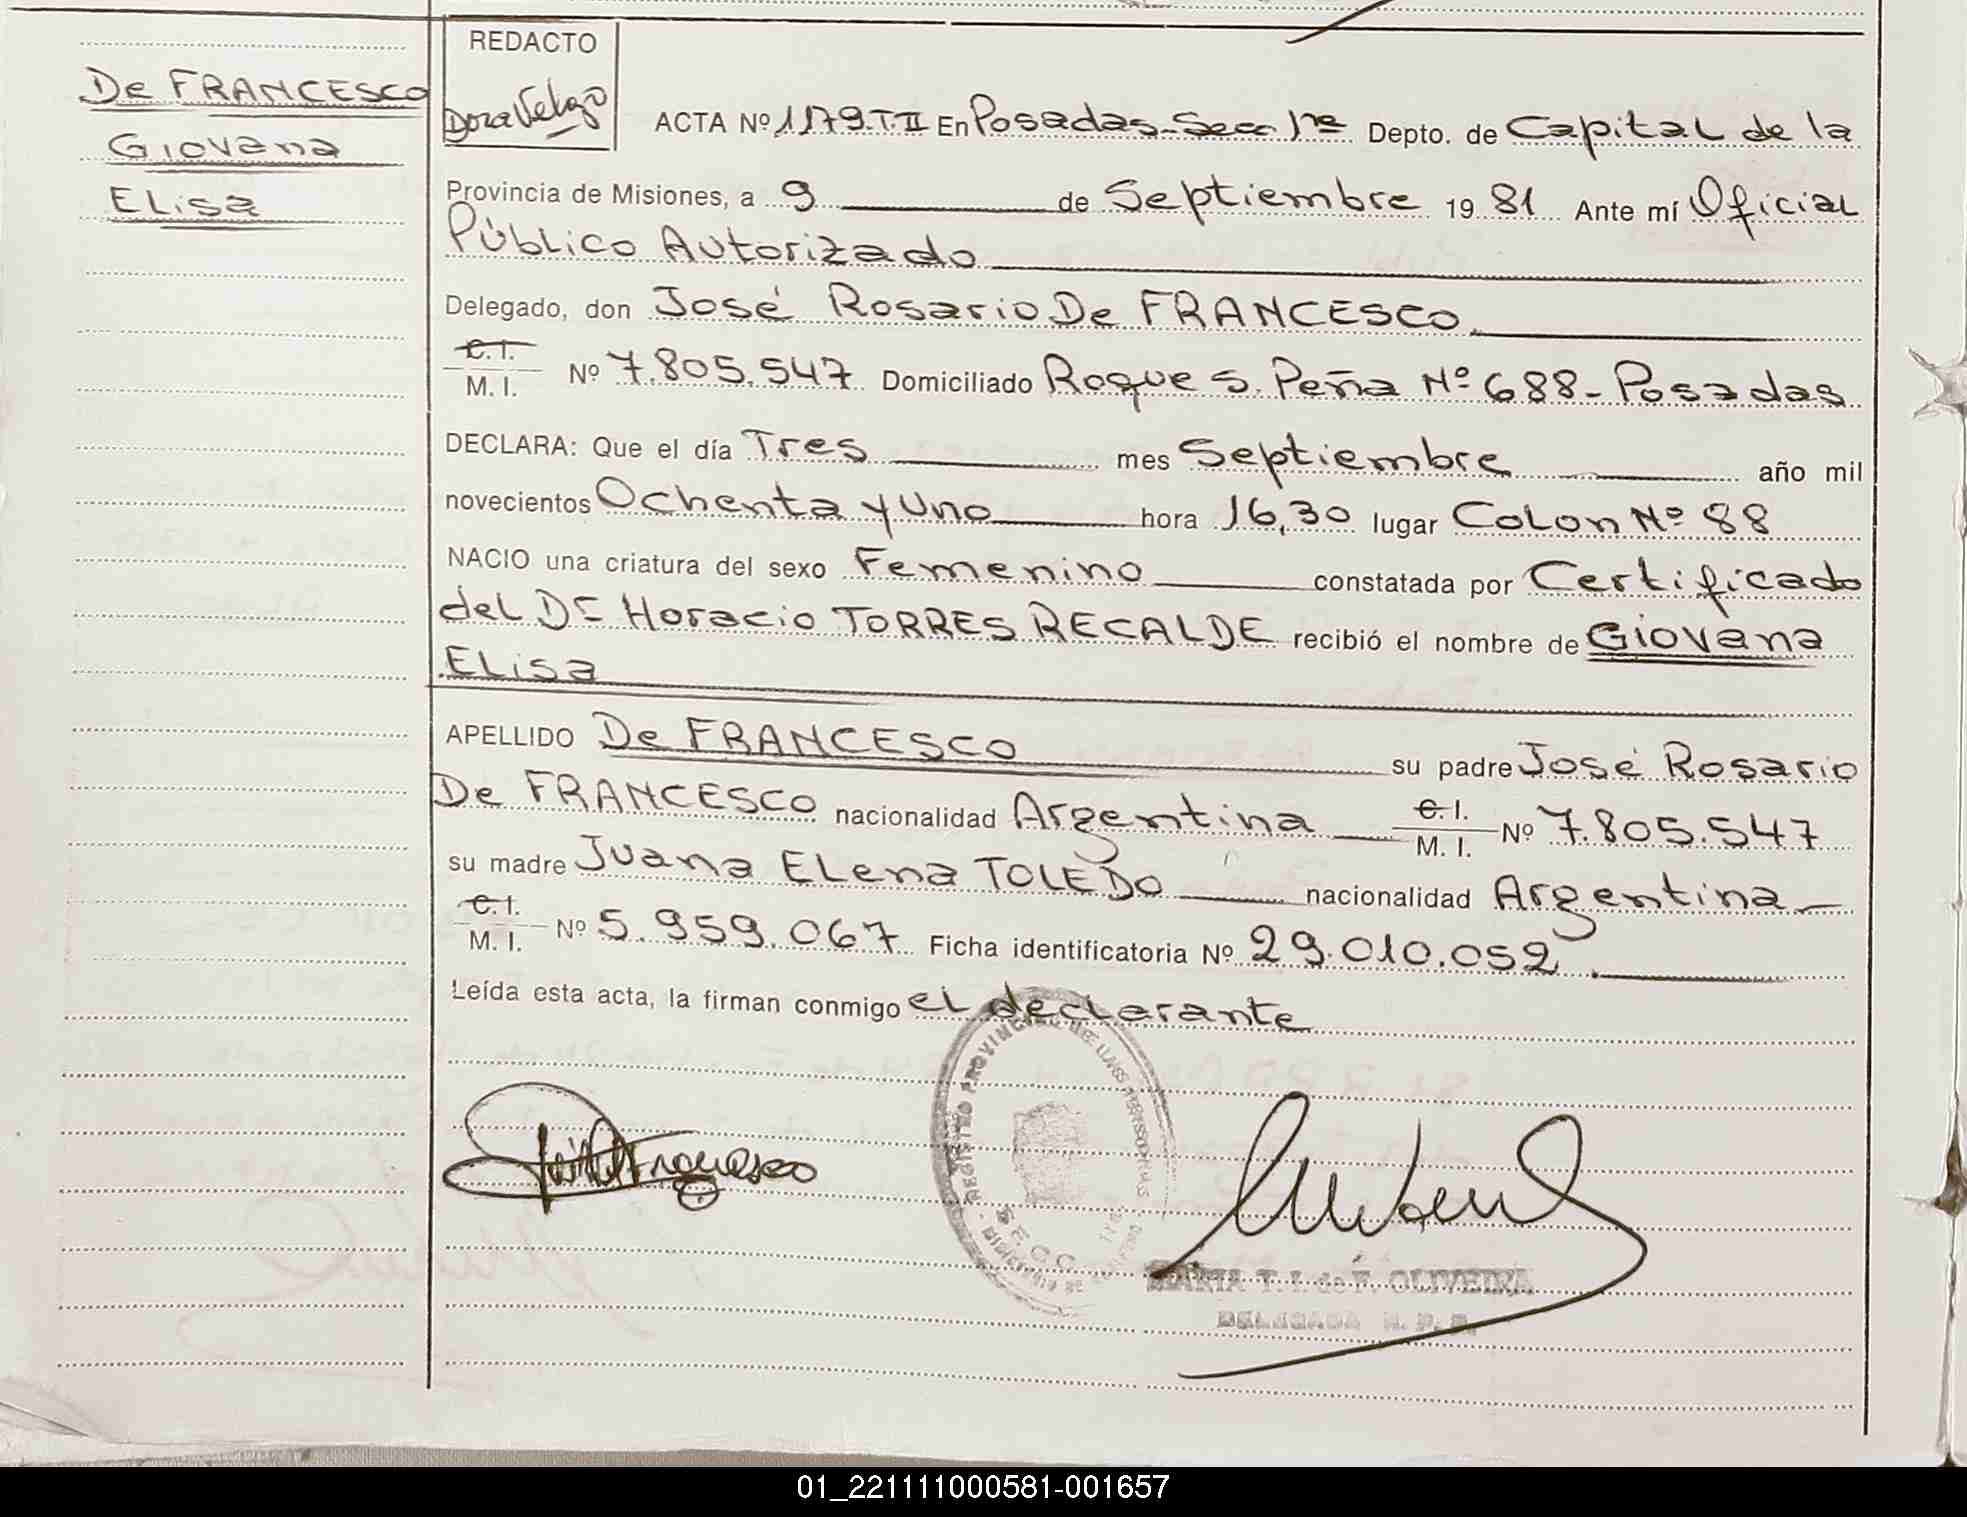 De FRANCESCO
Giovana
Elisa
REDACTO
Dora Velozo
ACTA Nº 1179.T.II En Posadas-Secc 1ra Depto. de Capital de la
Provincia de Misiones, a 9 de Septiembre 1981 Ante mí Oficial
Público Autorizado
Delegado, don José Rosario De FRANCESCO
C.I.
M. I. Nº 7.805.547 Domiciliado Roque S. Peña Nº 688-Posadas
DECLARA: Que el día Tres mes Septiembre año mil
novecientos Ochenta y Uno hora 16,30 lugar Colon Nº 88
NACIO una criatura del sexo Femenino constatada por Certificado
del Dr Horacio TORRES RECALDE recibió el nombre de Giovana
Elisa
APELLIDO De FRANCESCO su padre José Rosario
De FRANCESCO nacionalidad Argentina C.I. M. I. Nº 7.805.547
su madre Juana Elena TOLEDO nacionalidad Argentina
C.I.
M. I. Nº 5.959.067 Ficha identificatoria Nº 29.010.052
Leída esta acta, la firman conmigo el declarante
REGISTRO PROVINCIAL DE LAS PERSONAS
SECC.
MARIA T. I. de F. OLIVEIRA
DELEGADA R. P. P.
01_221111000581-001657